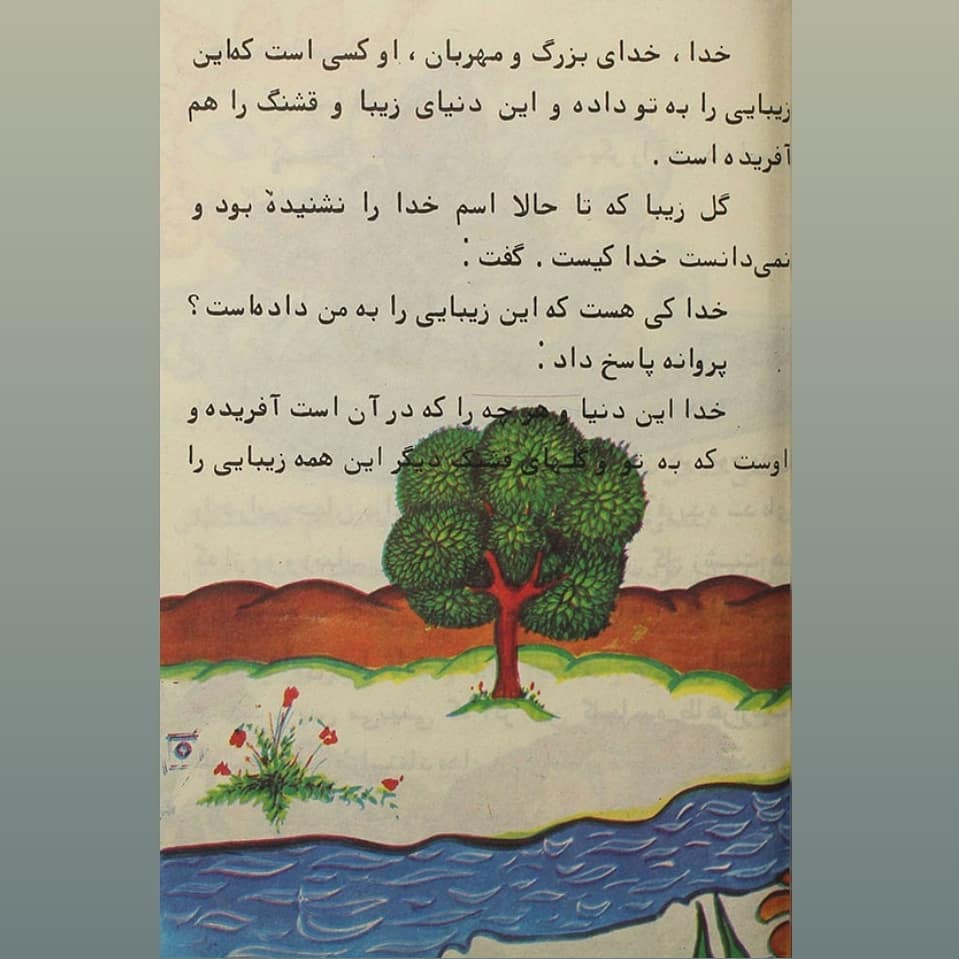 خدا ، خدای بزرگ و مهربان ، او کسی است که‌این
زیبایی را به تو داده و این دنیای زیبا و قشنگ را هم
آفریده است .
گل زیبا که تا حالا اسم خدا را نشنیده بود و
نمی‌دانست خدا کیست . گفت :
خدا کی هست که این زیبایی را به من داده‌است ؟
پروانه پاسخ داد :
خدا این دنیا و هر چه را که در آن است آفریده و
اوست که به تو و گلهای قشنگ دیگر این همه زیبایی را